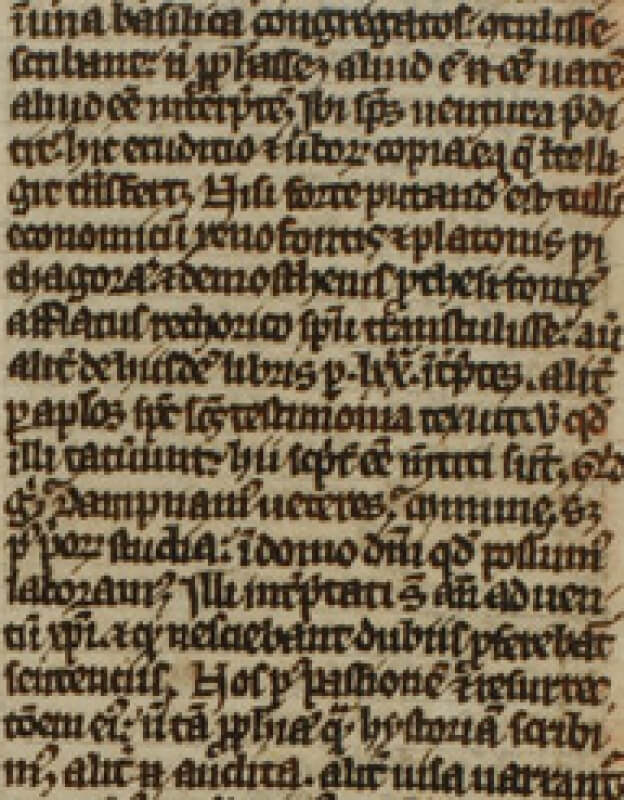 ı̄ una basilica congregatos ꝯtulisse
scribant: n̄ ꝓphasse, aliud ē .n. cē uatē
aliud eē int̾p̄tē, Ibi sp̄s uentura p̄di
cit: hic eruditio ⁊ ūboꝝ copia ea q̄ ītelli-
git t̃nsfert, Nisi forte putand᾽ est tulli᾽
economicū xenofontis ⁊ platonis pi
thagorā ⁊ demosthenis prthesifontē
afflatus rethorico sp̄u t̃nstulisse: aū
alit̾ de hisdē libris p̱ .lxx. īt̾p̄tes, alit̾
p̱ apl̄os sp̄c sc̄s testimonia texuit: ū qd̾
illi tacūunt: hii sc̾pt̄ eē m̄titi sint, Qid
g̊, Dampnam᾽ ueteres, minime, sꝫ
p᾽ p̾oꝝ studia: ī domo dn̄i qd̾ possum᾽
laboram᾽, Illi int̾p̄tati s̄ añ aduen
tū xp̄i ⁊ q᾽ nesciebant dubiis ꝓferebāt
sentenciis, Nos p᾽ passionē ⁊ resurrec
tōem ei᾽: n̄ tā ꝓphiā q̄ hystoriā scribi
m᾽, alit̾ .n. audita. alit̾ uisa narrant᾽